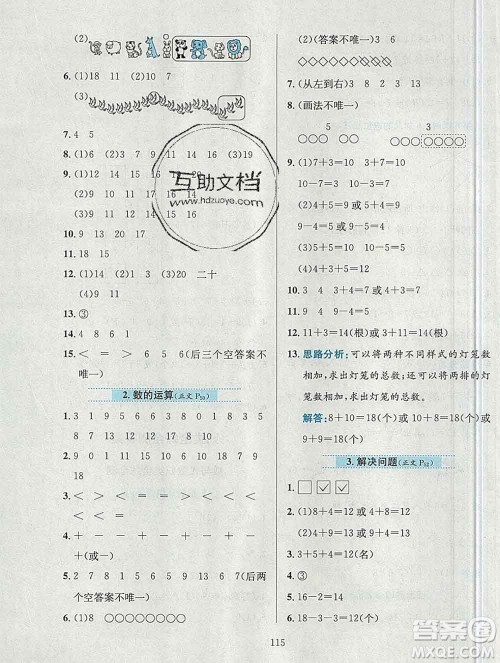 (2)
6. (1)18 11 (2)
(3)
7. 4 5
8. (1)6 (2)
9. (2)9 10
(3)20
10. 9 13 20 17
11. 18 15
12. (1)1 4 (3)20 二十
(4)9 11
13. ③
14. 4 8 6 1
15. < = > > 6 5(后三个空答案不
唯一)
2. 数的运算(正文 P50)
1. 3 1 9 3 7 3 8 19 0 1 8
2. 3 9 4 5 1 6 3 13 8 9
9 18
3. > < > < < < > < =
4. + - - + - + - + -
+(或一)
5. 2 7 8 15 9 6 1 5 13(后两
个空答案不唯一)
6. (1)8 ○○○○○○○○
(2)(答案不唯一)3 6
7. (从左到右)3 8 2 13 3
8. (画法不唯一)
5 3
○○○ ○○ ○○○○ ○○○○
9. (1)7+3=10 3+7=10
10-7=3 10-3=7
(2)5+4=9或4+5=9
(3)9-4=5或9-5=4
(4)3+4+5=12
10. 3 4 3+4=7或4+3=7
11. 9-4=5
12. 11+3=14(根)或3+11=14(根)
13. 思路分析:可以将两种不同样式的灯笼数
相加,求出灯笼的总数;也可以将两排的灯
笼数相加,求出灯笼的总数。
解答:8+10=18(个)或10+8=18(个)或
9+9=18(个)
3. 解决问题(正文 P52)
1. □ ☑ ☑
2. (1)8+4=12或4+8=12
(2)10+4=14或4+10=14
(4)4+8=12(名)
4. ③
5. 16-2=14
6. 18-3-3=12(个)
115
互助文档
www.hdzuoye.com
答案圈
MXQE.COM